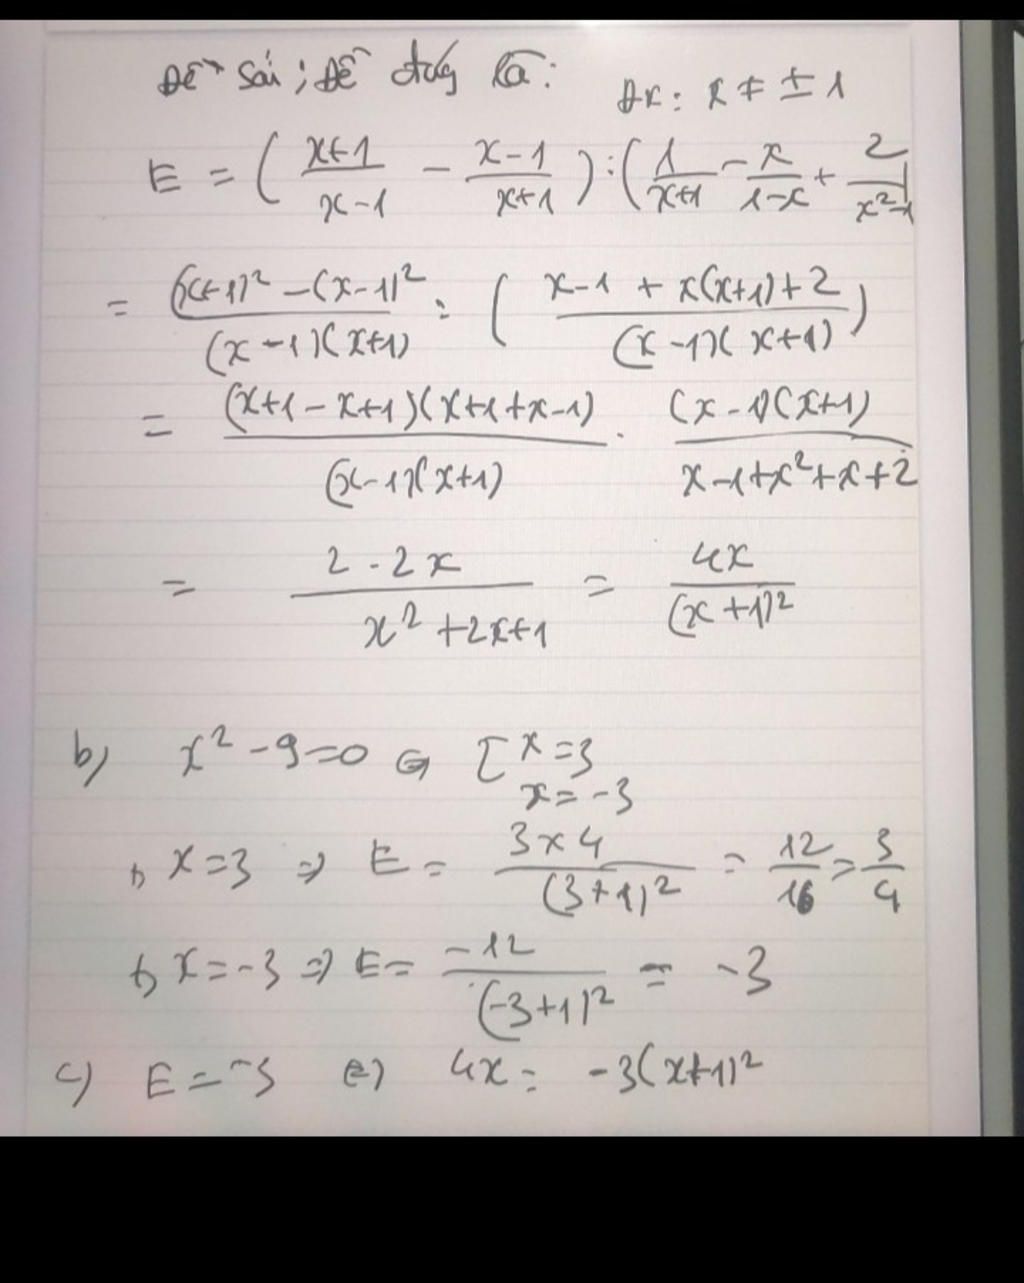 Đề sai; Đề đúng là:
ĐK: x ≠ ± 1
E = ( (x+1)/(x-1) - (x-1)/(x+1) ) : ( 1/(x+1) - x/(1-x) + 2/(x²-1)
= ((x+1)² - (x-1)²)/((x-1)(x+1)) : ( (x-1 + x(x+1)+2)/((x-1)(x+1)) )
= ((x+1-x+1)(x+1+x-1))/((x-1)(x+1)) . ((x-1)(x+1))/(x-1+x²+x+2)
= (2.2x)/(x²+2x+1) = 4x/(x+1)²
b) x² - 9 = 0 ⇔ [ x = 3
x = -3
+) x = 3 => E = (3 x 4)/(3+1)² = 12/16 = 3/4
+) x = -3 => E = -12/(-3+1)² = -3
c) E = -3 ⇔ 4x = -3(x+1)²